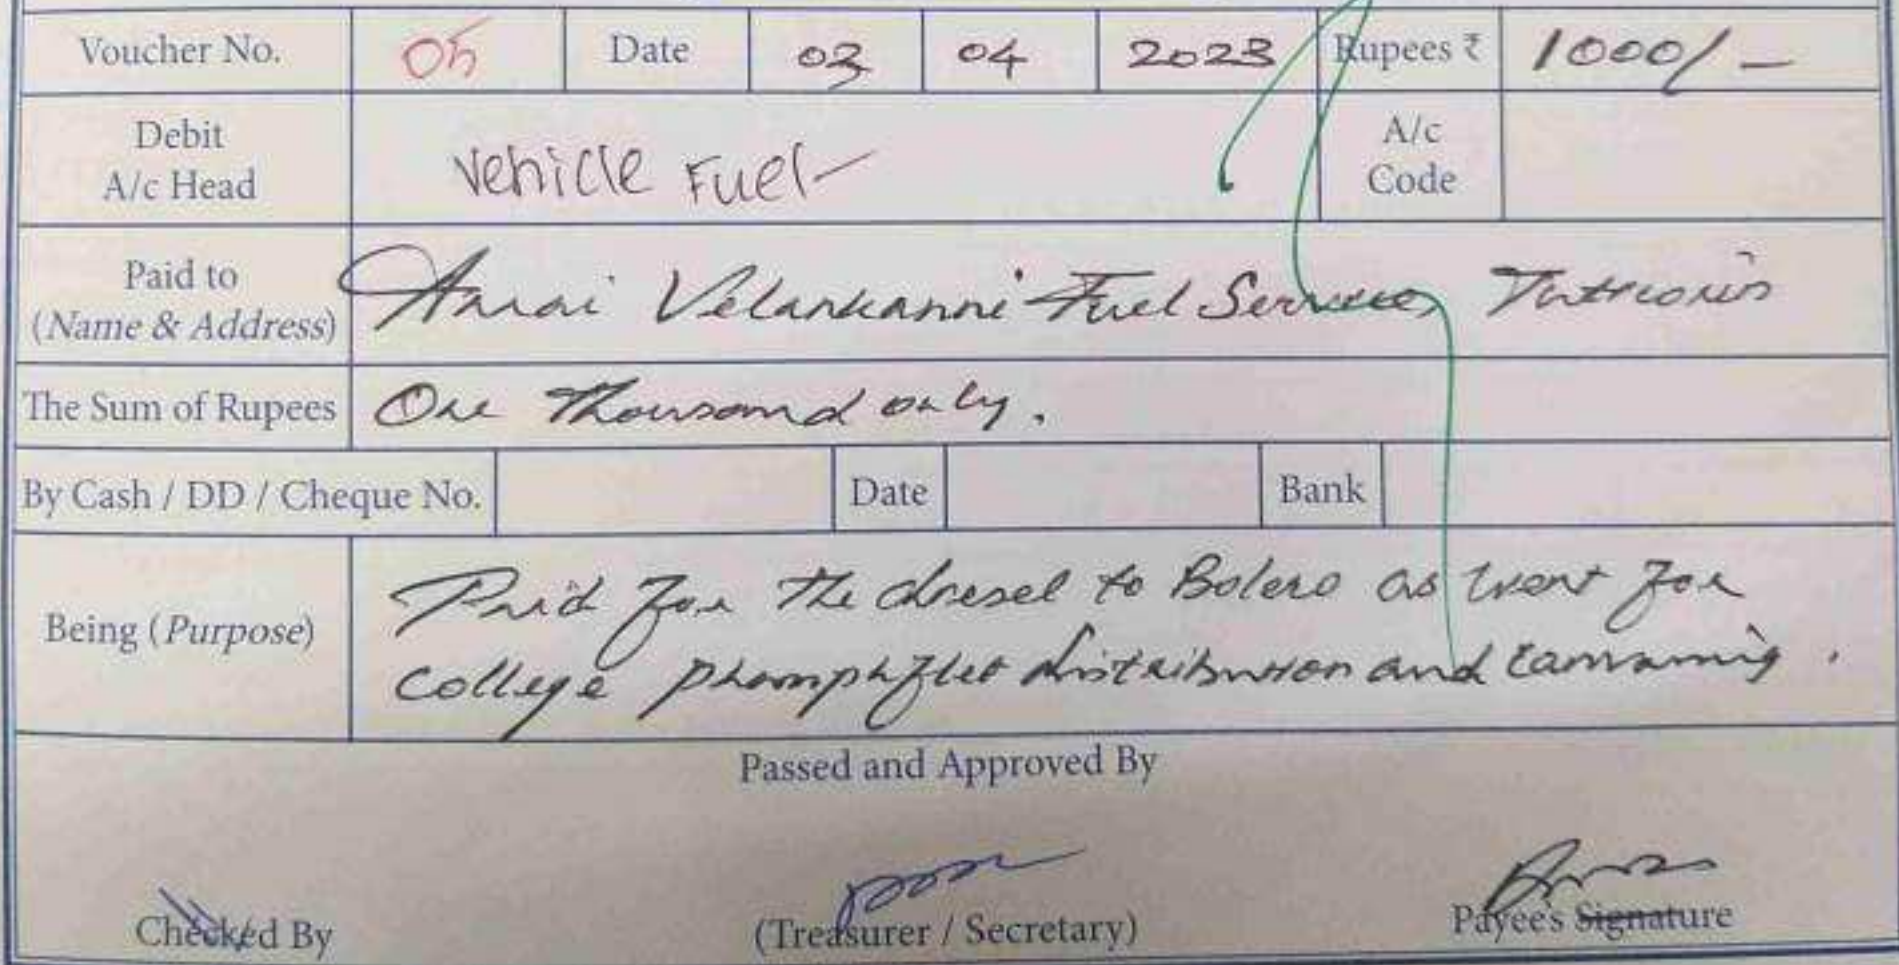 Voucher No. 05 Date 03 04 2023 Rupees ₹ 1000/-
Debit A/c Head Vehicle Fuel A/c Code
Paid to (Name & Address) Annai Velankanni Fuel Services, Tuticorin
The Sum of Rupees One Thousand only.
By Cash / DD / Cheque No. Date Bank
Being (Purpose) Paid for the diesel to Bolero as went for
college phamphflet distribution and canvasing.
Passed and Approved By
Checked By (Treasurer / Secretary) Payee's Signature